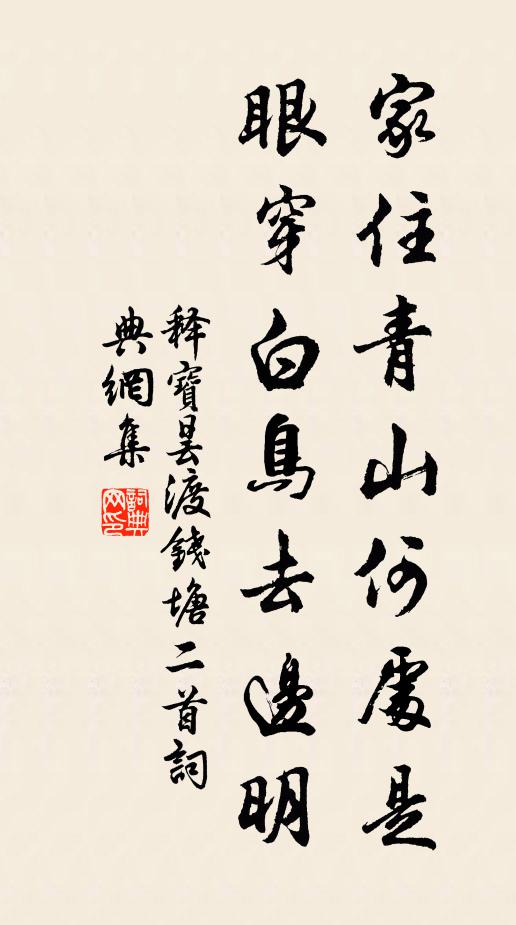 家住青山何處是
眼穿白鳥去邊明
釋寶曇渡錢塘二首詞
典網集
詞典网印